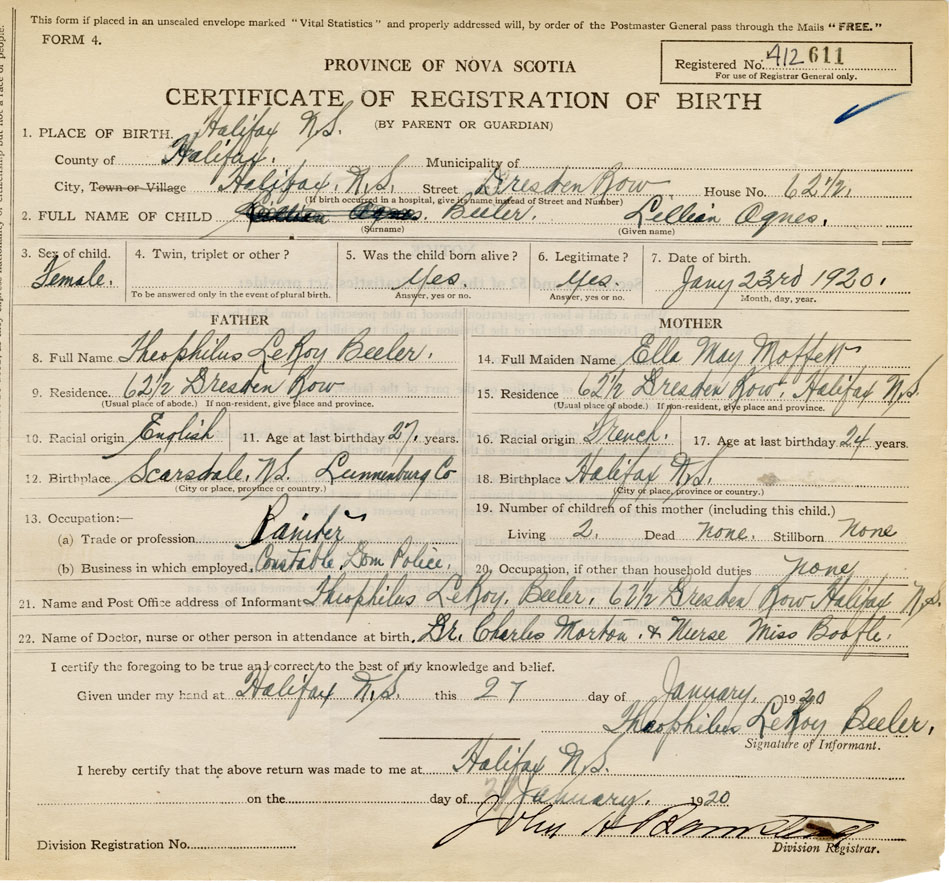 This form if placed in an unsealed envelope marked "Vital Statistics" and properly addressed will, by order of the Postmaster General pass through the Mails "FREE."
FORM 4.
Registered No. 412611
For use of Registrar General only.
PROVINCE OF NOVA SCOTIA
CERTIFICATE OF REGISTRATION OF BIRTH
(BY PARENT OR GUARDIAN)
1. PLACE OF BIRTH. Halifax N.S.
County of Halifax. Municipality of
City, Town or Village Halifax. N.S. Street Dresden Row House No. 62 1/2.
(If birth occurred in a hospital, give its name instead of Street and Number)
2. FULL NAME OF CHILD Lillian Agnes. Beeler. Lillian Agnes.
(Surname) (Given name)
3. Sex of child. 4. Twin, triplet or other? 5. Was the child born alive? 6. Legitimate? 7. Date of birth.
Female. Yes. Yes. Jany 23rd 1920.
To be answered only in the event of plural birth. Answer, yes or no. Answer, yes or no. Month, day, year.
FATHER
8. Full Name Theophilus LeRoy Beeler.
9. Residence. 62 1/2 Dresden Row
(Usual place of abode.) If non-resident, give place and province.
10. Racial origin English 11. Age at last birthday 27. years.
12. Birthplace Scarsdale, N.S. Lunnenburg Co
(City or place, province or country.)
13. Occupation:—
(a) Trade or profession Painter
(b) Business in which employed. Constable Dom Police.
MOTHER
14. Full Maiden Name Ella May Moffett
15. Residence 62 1/2 Dresden Row. Halifax N.S.
(Usual place of abode.) If non-resident, give place and province.
16. Racial origin French. 17. Age at last birthday 24 years.
18. Birthplace Halifax N.S.
(City or place, province or country.)
19. Number of children of this mother (including this child.)
Living 2. Dead none. Stillborn none
20. Occupation, if other than household duties none
21. Name and Post Office address of Informant Theophilus LeRoy. Beeler. 62 1/2 Dresden Row Halifax N.S.
22. Name of Doctor, nurse or other person in attendance at birth. Dr. Charles Morton. & Nurse Miss
I certify the foregoing to be true and correct to the best of my knowledge and belief.
Given under my hand at Halifax N.S. this 27 day of January, 1920
Theophilus LeRoy Beeler.
Signature of Informant.
I hereby certify that the above return was made to me at Halifax N.S.
on the day of January. 1920
John A
Division Registration No. Division Registrar.